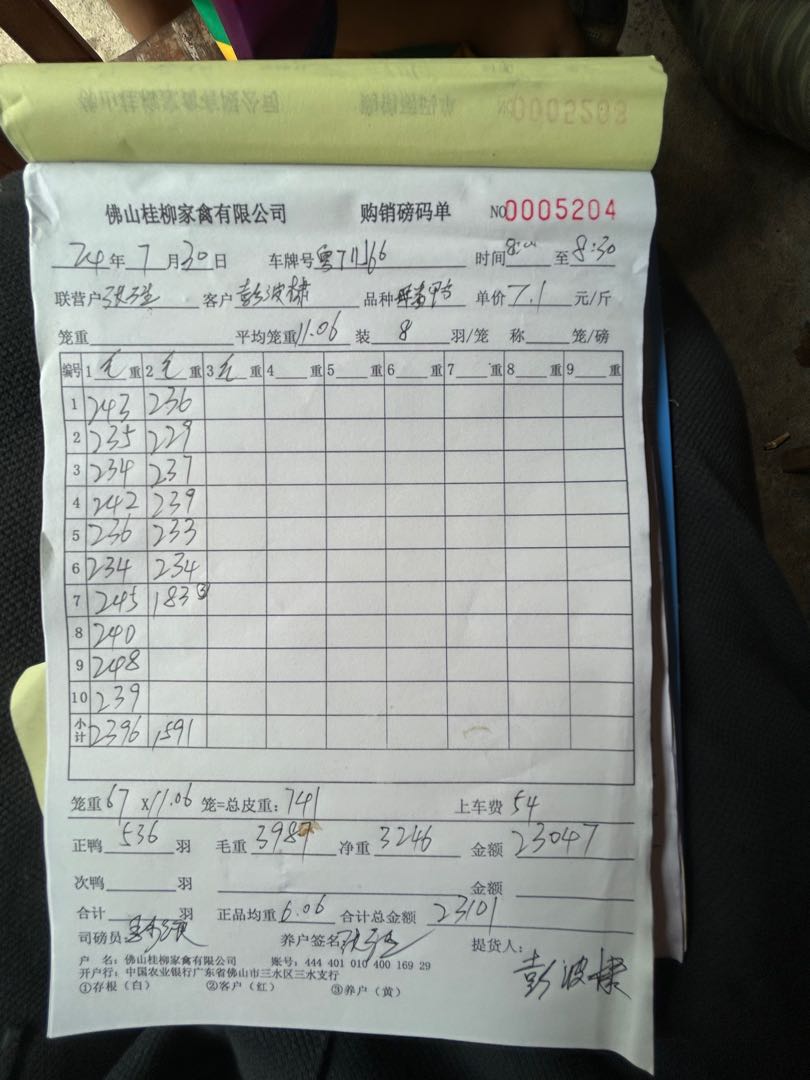 佛山桂柳家禽有限公司 购销磅码单 NO 0005204
24年 7月 30日 车牌号 粤 时间 8: 至 8:30
联营户 客户 彭波棣 品种 单价 7.1 元/斤
笼重 平均笼重 11.06 装 8 羽/笼 称 笼/磅
编号 1 毛重 2 毛重 3 毛重 4 重 5 重 6 重 7 重 8 重 9 重
1 243 236
2 235 229
3 234 237
4 242 239
5 236 233
6 234 234
7 245 183 ③
8 240
9 248
10 239
小计 2396 1591
笼重 67 X 11.06 笼=总皮重: 741 上车费 54
正鸭 536 羽 毛重 3987 净重 3246 金额 23047
次鸭 羽 金额
合计 羽 正品均重 6.06 合计总金额 23101
司磅员: 养户签名 提货人:
彭波棣
户 名: 佛山桂柳家禽有限公司 账号: 444 401 010 400 169 29
开户行: 中国农业银行广东省佛山市三水区三水支行
①存根(白) ②客户(红) ③养户(黄)